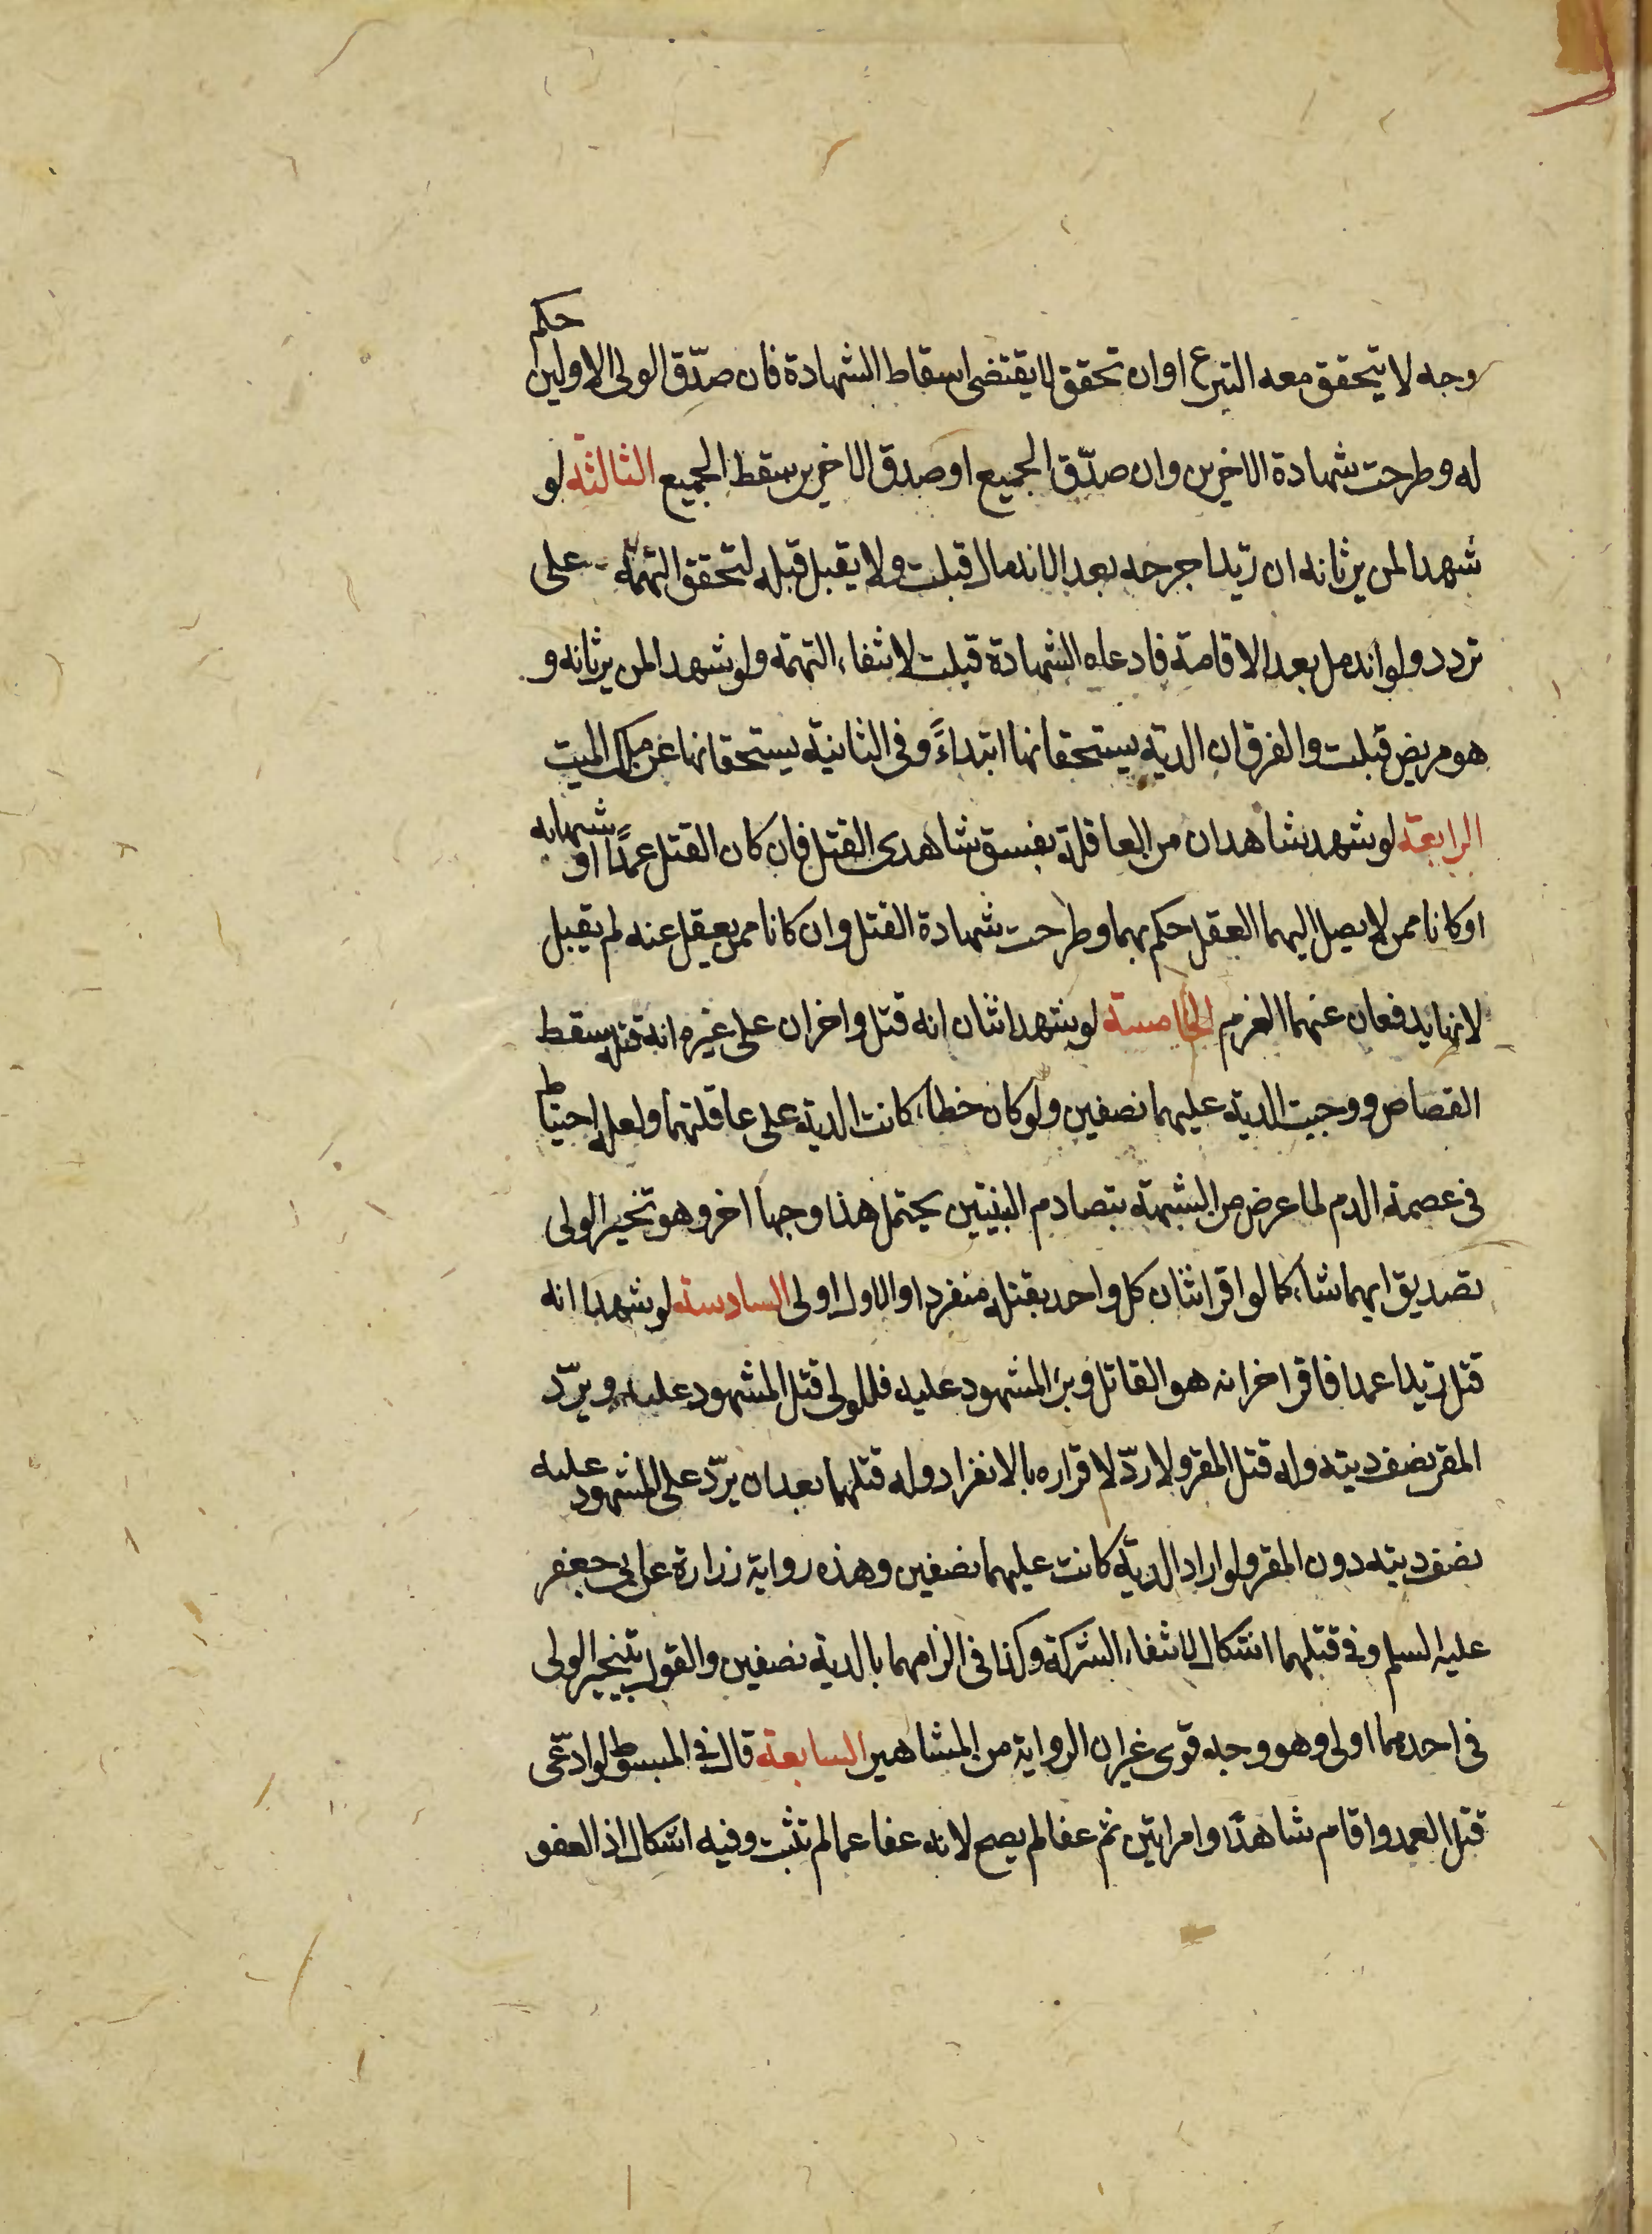 وجه لا يتحقق معه التبرع او ان تحقق لا يقتضى اسقاط الشهادة فان صدّق الولى الاولين حكم
له وطرحت شهادة الاخرين وان صدّق الجميع او صدق الاخرين سقط الجميع الثالثة لو
شهدا لمن يرثانه ان زيدا جرحه بعد الاندمال قبلت ولا يقبل قبله لتحقق التهمة على
تردد ولو اندمل بعد الاقامة فادعاه الشهادة قبلت لانتفاء التهمة ولو شهدا لمن يرثانه و
هو مريض قبلت والفرق ان الدية يستحقانها ابتداءً وفى الثانية يستحقانها عن ملك الميت
الرابعة لو شهد شاهدان من العاقلة بفسق شاهدى القتل فان كان القتل عمدًا او شبها به
او كانا ممن لا يصل اليهما العقل حكم بهما وطرحت شهادة القتل وان كانا ممن يعقل عنه لم يقبل
لانهما يدفعان عنهما الغرم الخامسة لو شهد اثنان انه قتل واخران على غيره انه قتله سقط
القصاص ووجبت الدية عليهما نصفين ولو كان خطاء كانت الدية على عاقلتهما ولعله احتياط
فى عصمة الدم لما عرض من الشبهة بتصادم البينتين يحتمل هذا وجها اخر وهو تخير الولى
تصديق ايهما شاء كما لو اقر اثنان كل واحد بقتله منفردا والاول اولى السادسة لو شهدا انه
قتل زيدا عمدا فاقر اخر انه هو القاتل وبرئ المشهود عليه فللولى قتل المشهود عليه ويردّ
المقر نصف ديته وله قتل المقر ولا ردّ لاقراره بالانفراد وله قتلهما بعد ان يردّ على المشهود عليه
نصف ديته دون المقر ولو اراد الدية كانت عليهما نصفين وهذه رواية زرارة عن ابى جعفر
عليه السلم وفى قتلهما اشكال لانتفاء الشركة وكذا فى الزامهما بالدية نصفين والقول بتخير الولى
فى احدهما اولى وهو وجه قوى غير ان الرواية من المشاهير السابعة قال فى المبسوط لو ادعى
قتل العمد واقام شاهدًا وامراتين ثم عفا لم يصح لانه عفا عما لم تثبت وفيه اشكال اذ العفو